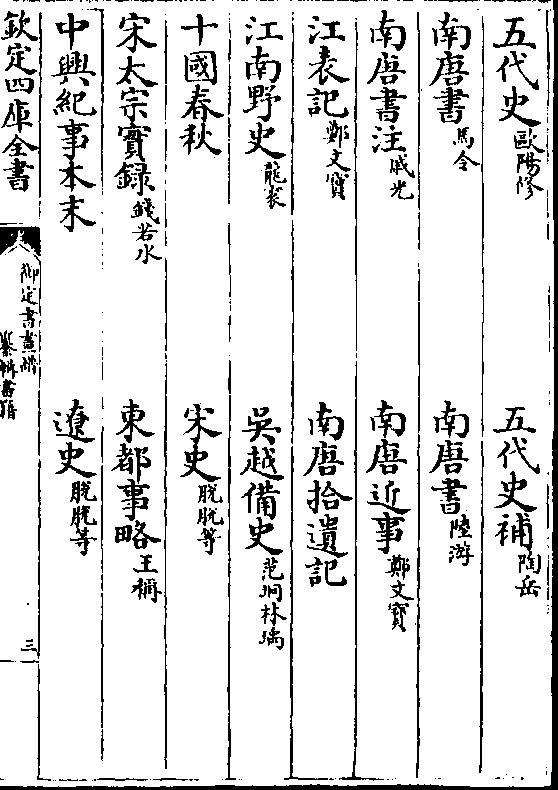 五代史歐陽修　五代史補陶岳
南唐書馬令　南唐書陸游
南唐書注戚光　南唐近事鄭文寳
江表記鄭文寳　南唐拾遺記
江南野史龍袞　吳越備史范坰林瑀
十國春秋　宋史脫脫等
宋太宗實録錢若水　東都事略王稱
中興紀事本末　遼史脫脫等
欽定四庫全書　御定書畫譜纂輯書籍　三